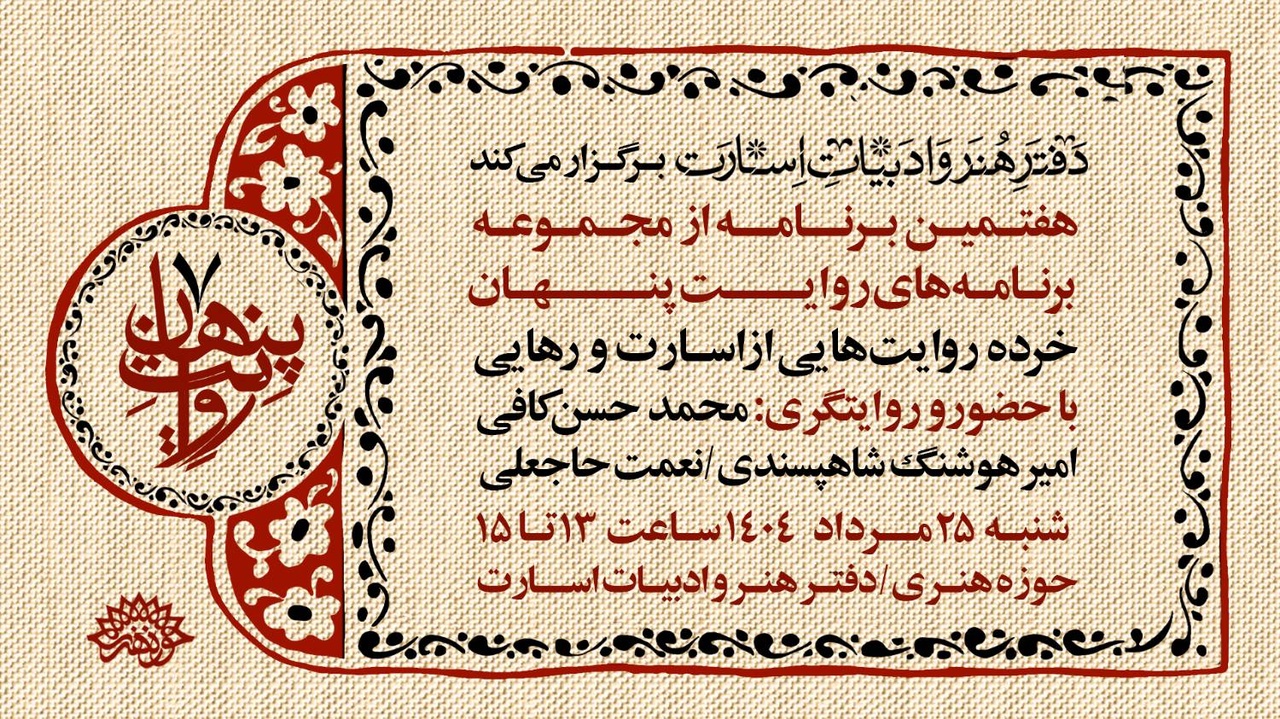 دَفتَرِ هُنَر وَ ادَبیّاتِ اِسارَت برگزار می‌کند
هفتمین برنامه از مجموعه
برنامه‌های روایت پنهان
خرده روایت‌هایی از اسارت و رهایی
با حضور و روایتگری: محمد حسن کافی
امیر هوشنگ شاهپسندی / نعمت حاجعلی
شنبه ۲۵ مرداد ۱۴۰۴ ساعت ۱۳ تا ۱۵
حوزه هنری / دفتر هنر و ادبیات اسارت
۷
پنهان
روایت
حوزه هنری